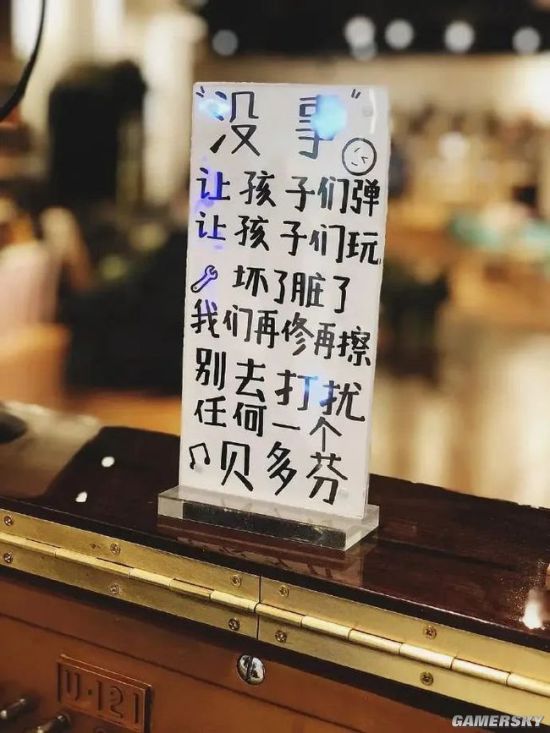 "没事"
让孩子们弹
让孩子们玩
坏了脏了
我们再修再擦
别去打扰
任何一个
贝多芬
U·121
GAMERSKY